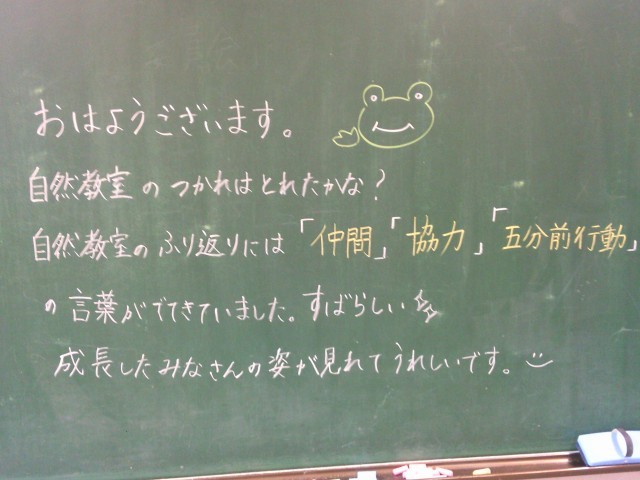 おはようございます。
自然教室のつかれはとれたかな?
自然教室のふり返りには「仲間」「協力」「五分前行動」
の言葉がでてきていました。すばらしい
成長したみなさんの姿が見れてうれしいです。